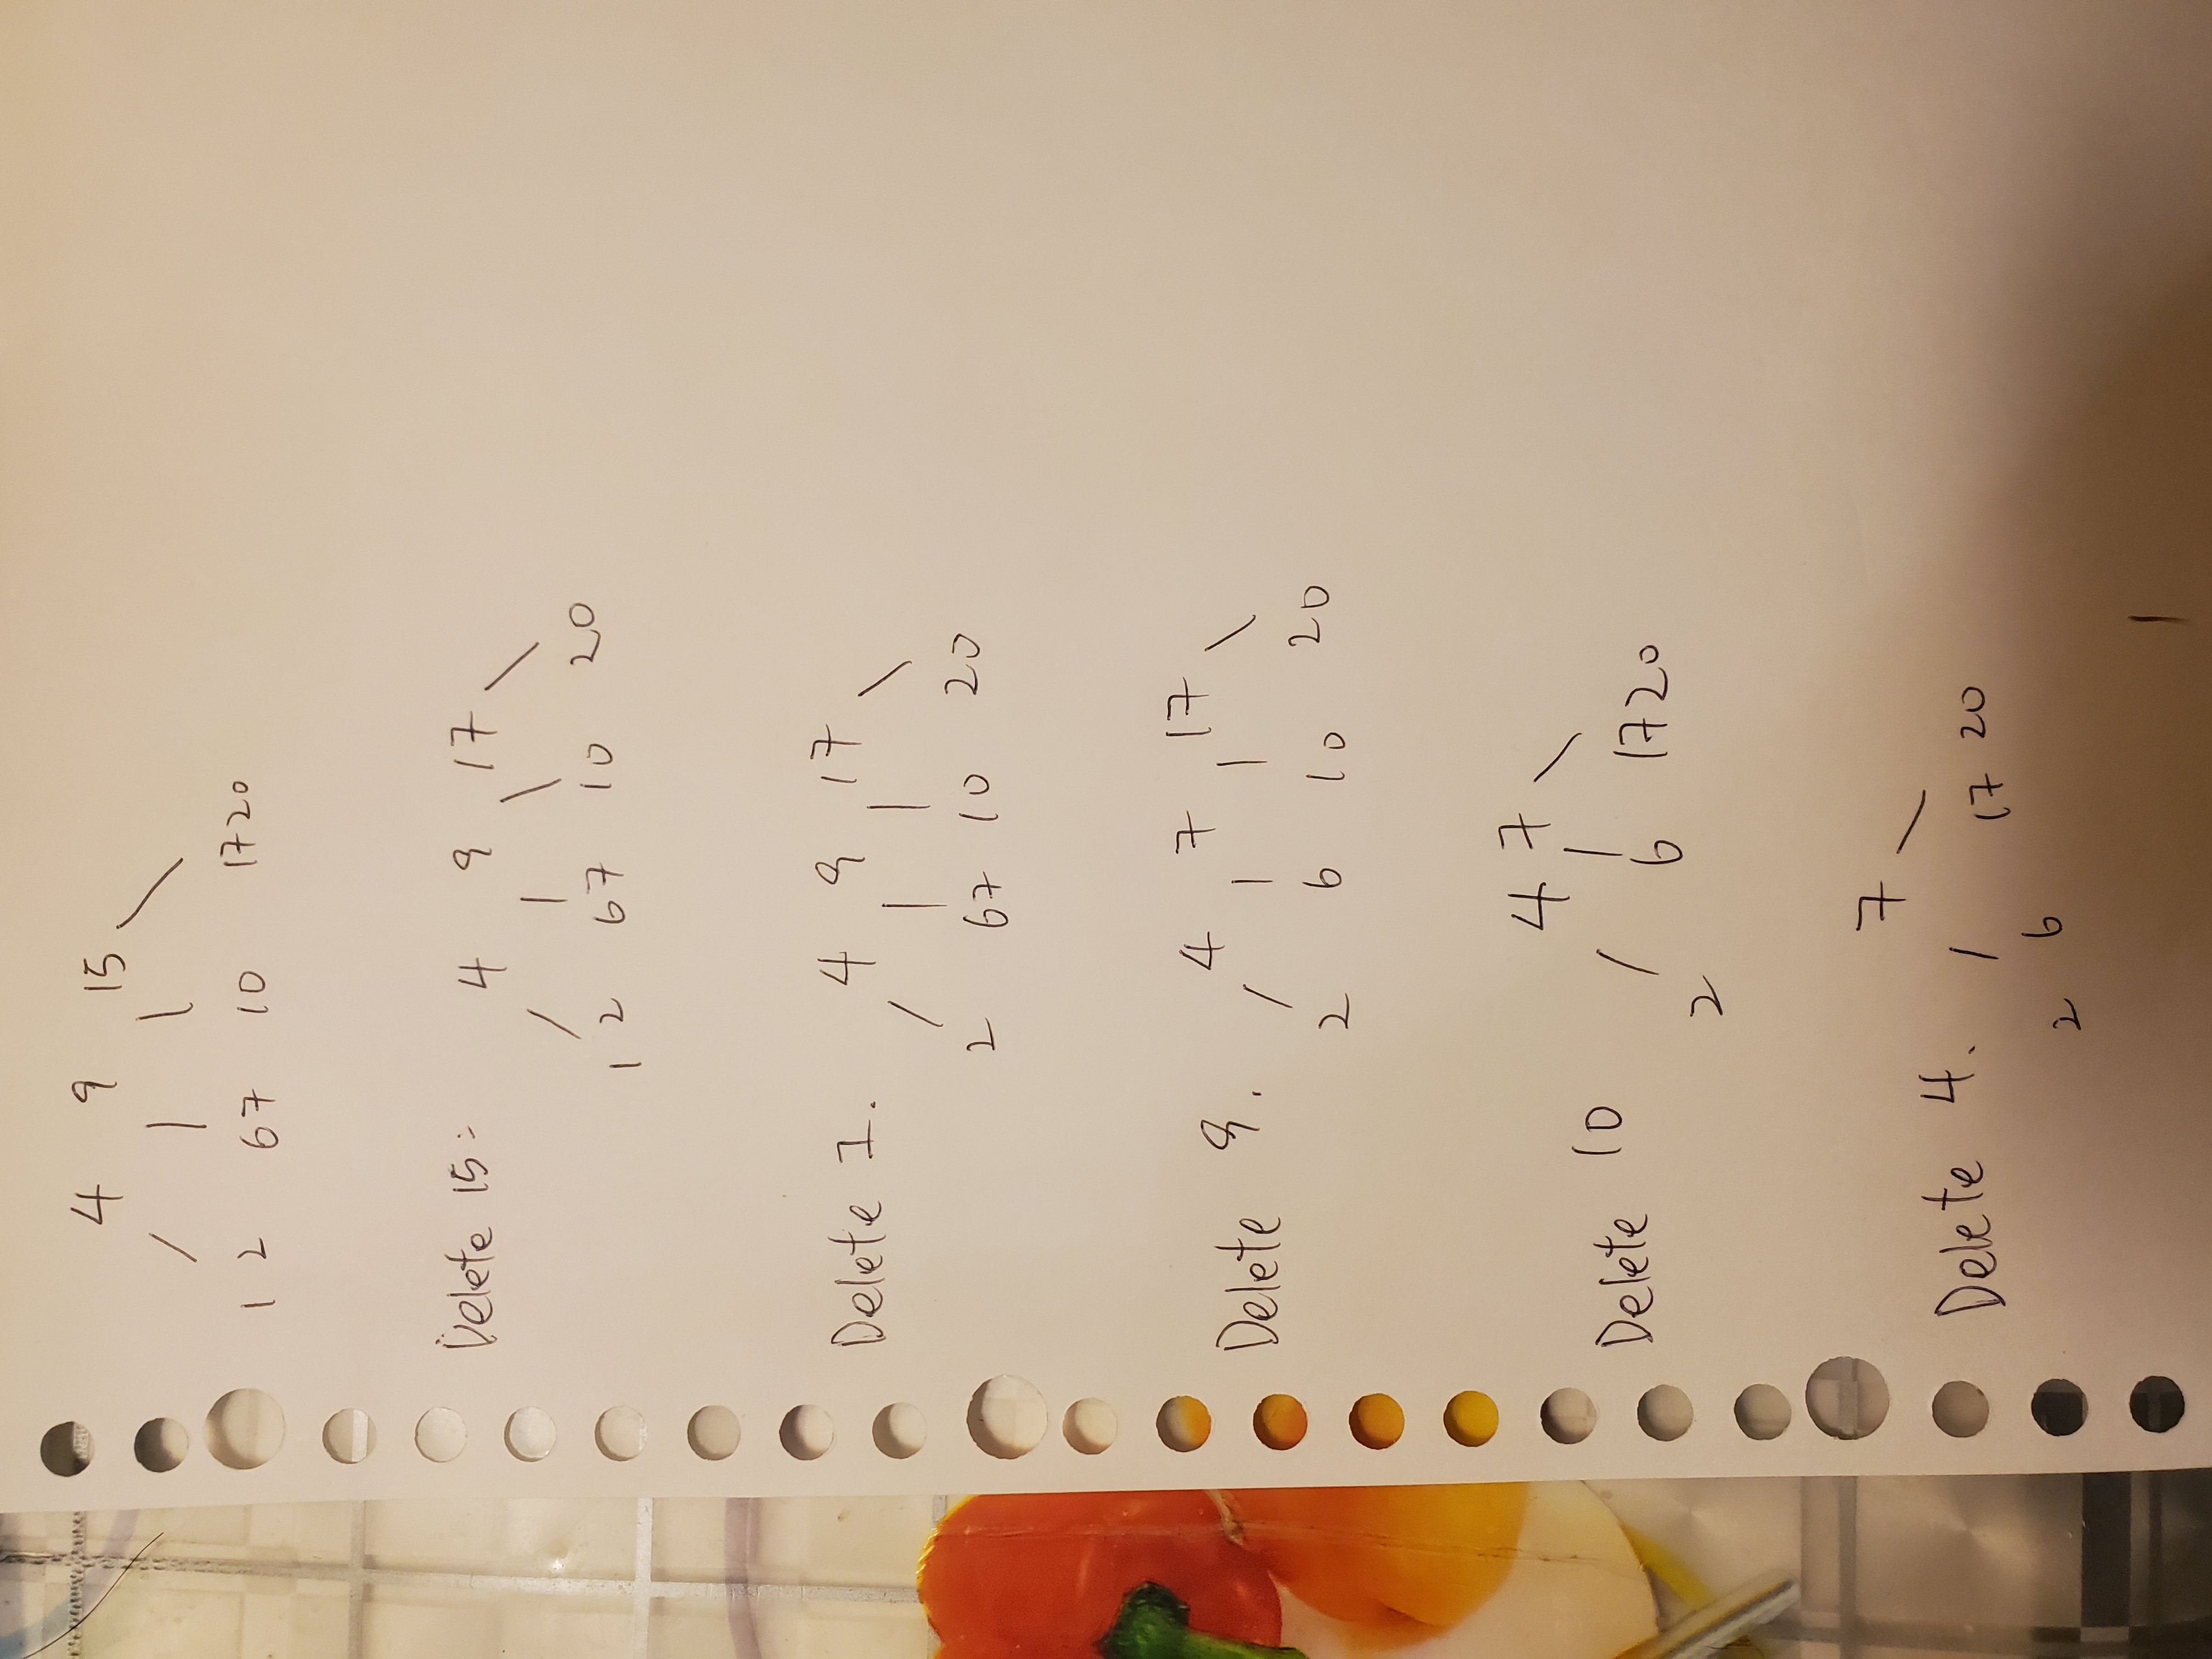 4 9 15
1 2 67 10 1720
Delete 15: 4 9 17
1 2 67 10 20
Delete 1. 4 9 17
2 67 10 20
Delete 9. 4 7 17
2 6 10 20
Delete 10 4 7
2 6 1720
Delete 4. 7
2 6 17 20